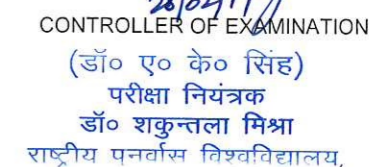 CONTROLLER OF EXAMINATION
(डॉ० ए० के० सिंह)
परीक्षा नियंत्रक
डॉ० शकुन्तला मिश्रा
राष्ट्रीय पुनर्वास विश्वविद्यालय,